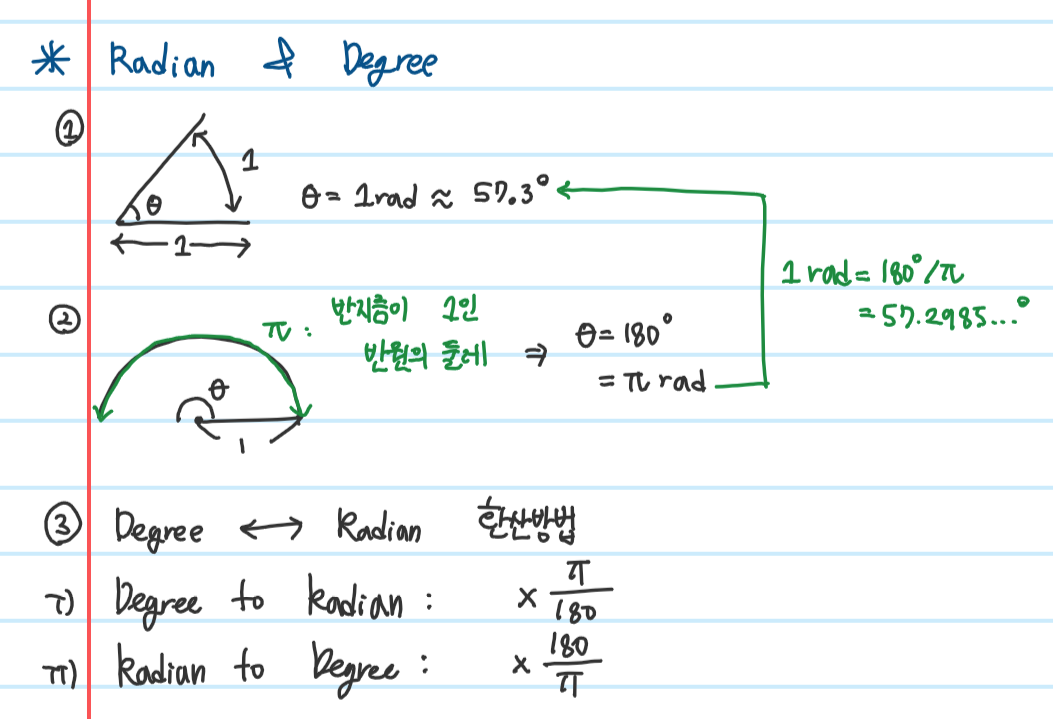 * Radian & Degree
①
1
θ
1
θ = 1rad ≈ 57.3°
1 rad = 180°/π
= 57.2985...°
②
π : 반지름이 1인
반원의 둘레 ⇒
θ
1
θ = 180°
= π rad
③ Degree ↔ Radian 환산방법
i) Degree to Radian : × π/180
ii) Radian to Degree : × 180/π